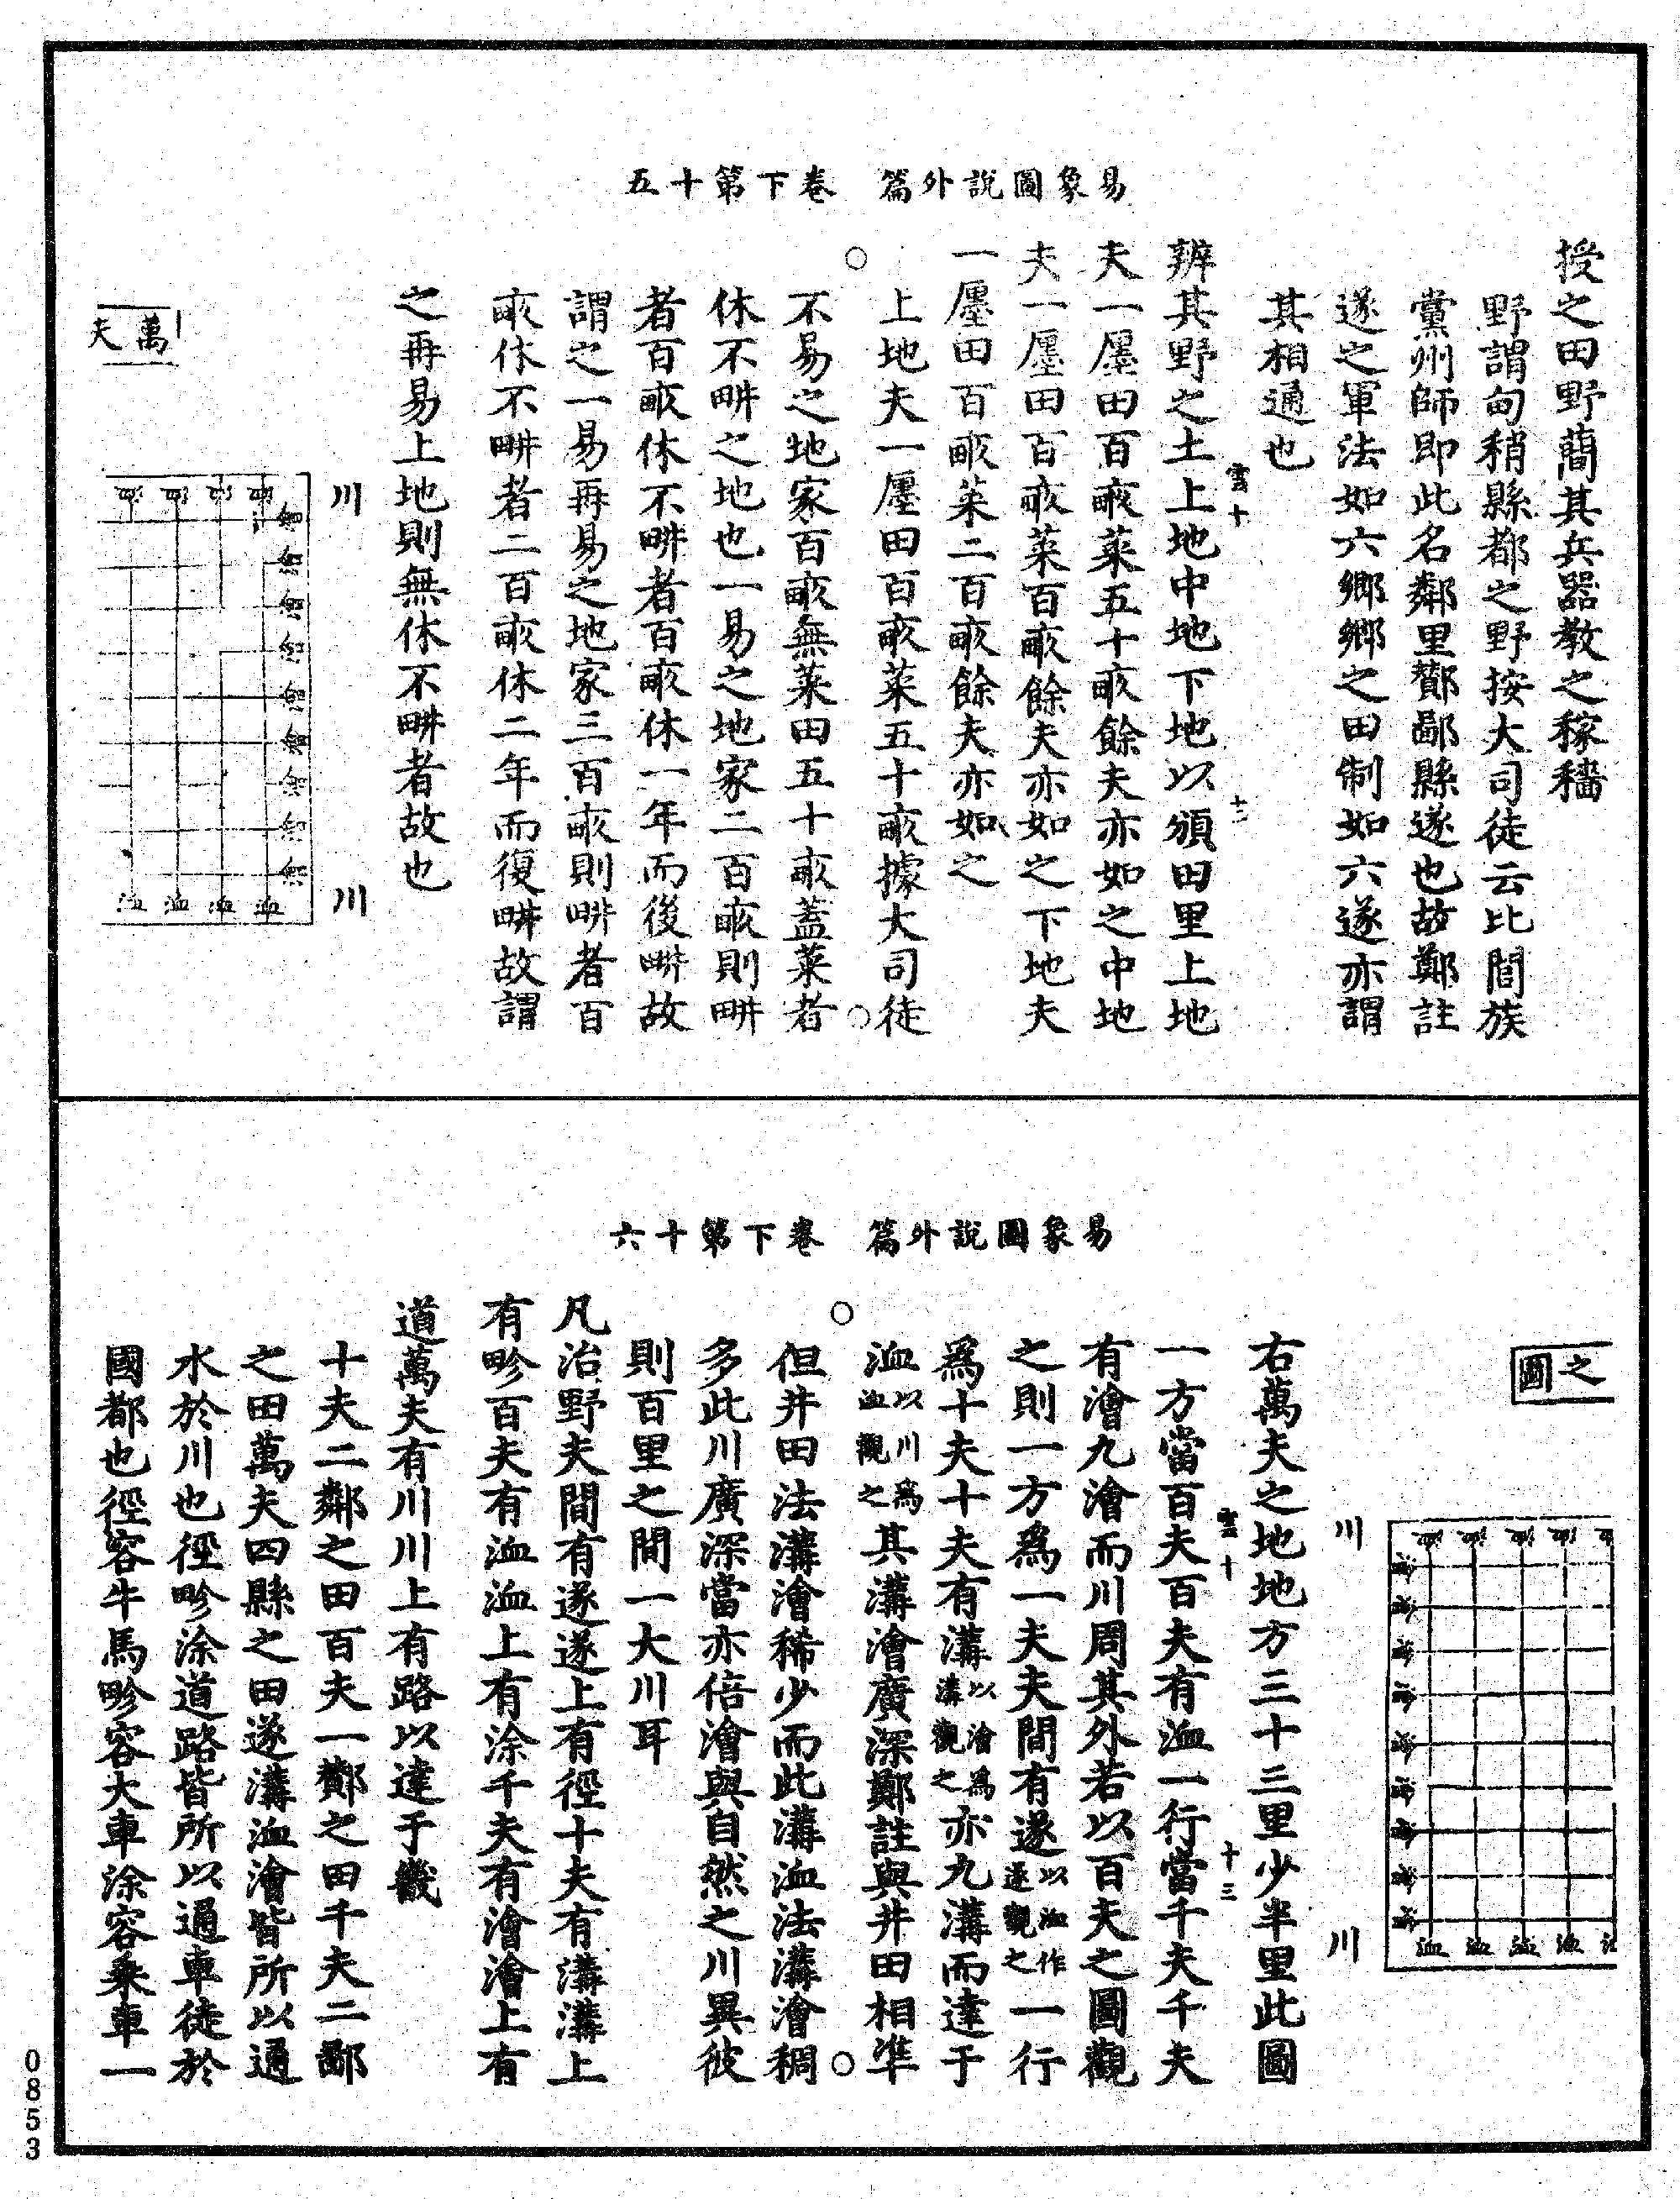 易象圖說外篇　卷下第十五
授之田野簡其兵器教之稼穡
野謂甸稍縣都之野按大司徒云比閭族
黨州師即此名鄰里酇鄙縣遂也故鄭註
遂之軍法如六鄉鄉之田制如六遂亦謂
其相通也
雲十
十二
辨其野之土上地中地下地以頒田里上地
夫一廛田百畮萊五十畮餘夫亦如之中地
夫一廛田百畮萊百畮餘夫亦如之下地夫
一廛田百畮萊二百畮餘夫亦如之
上地夫一廛田百畮萊五十畮據大司徒
不易之地家百畮無萊田五十畮蓋萊者
休不畊之地也一易之地家二百畮則畊
者百畮休不畊者百畮休一年而後畊故
謂之一易再易之地家三百畮則畊者百
畮休不畊者二百畮休二年而復畊故謂
之再易上地則無休不畊者故也
川
川
洫
洫
洫
洫
萬夫
易象圖說外篇　卷下第十六
之圖
洫
洫
洫
洫
川
川
右萬夫之地地方三十三里少半里此圖
雲十
十三
一方當百夫百夫有洫一行當千夫千夫
有澮九澮而川周其外若以百夫之圖觀
之則一方爲一夫夫間有遂以洫作遂觀之一行
爲十夫十夫有溝以澮爲溝觀之亦九溝而達于
洫以川爲洫觀之其溝澮廣深鄭註與井田相準
但井田法溝澮稀少而此溝洫法溝澮稠
多此川廣深當亦倍澮與自然之川異彼
則百里之間一大川耳
凡治野夫間有遂遂上有徑十夫有溝溝上
有畛百夫有洫洫上有涂千夫有澮澮上有
道萬夫有川川上有路以達于畿
十夫二鄰之田百夫一酇之田千夫二鄙
之田萬夫四縣之田遂溝洫澮皆所以通
水於川也徑畛涂道路皆所以通車徒於
國都也徑容牛馬畛容大車涂容乗車一
0853